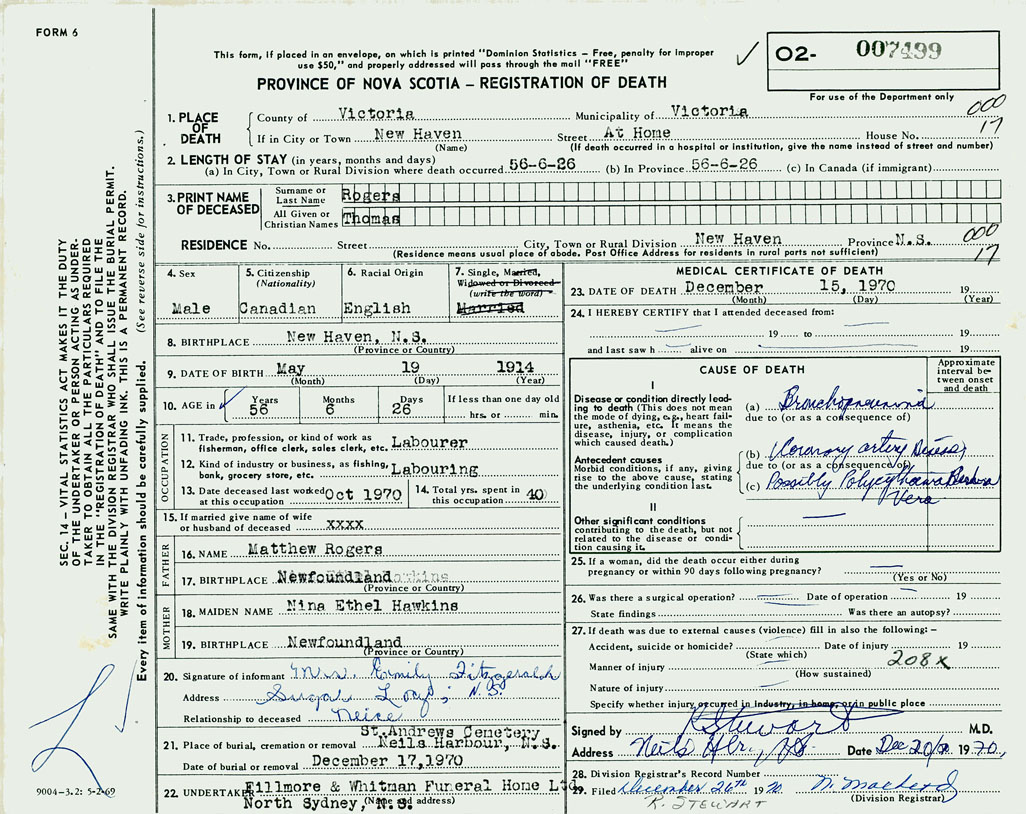 FORM 6
This form, if placed in an envelope, on which is printed "Dominion Statistics – Free, penalty for improper
use $50," and properly addressed will pass through the mail "FREE"
PROVINCE OF NOVA SCOTIA – REGISTRATION OF DEATH
02- 007499
For use of the Department only
000
17
1. PLACE OF DEATH
County of Victoria Municipality of Victoria
If in City or Town New Haven Street At Home House No.
(Name) (If death occurred in a hospital or institution, give the name instead of street and number)
2. LENGTH OF STAY (in years, months and days)
(a) In City, Town or Rural Division where death occurred 56-6-26 (b) In Province 56-6-26 (c) In Canada (if immigrant)
3. PRINT NAME OF DECEASED
Surname or Last Name Rogers
All Given or Christian Names Thomas
RESIDENCE No. Street City, Town or Rural Division New Haven Province N.S.
(Residence means usual place of abode. Post Office Address for residents in rural parts not sufficient)
000
17
4. Sex
Male
5. Citizenship
(Nationality)
Canadian
6. Racial Origin
English
7. Single, Married,
Widowed or Divorced
(write the word)
Married
8. BIRTHPLACE New Haven, N.S.
(Province or Country)
9. DATE OF BIRTH May 19 1914
(Month) (Day) (Year)
10. AGE in Years Months Days If less than one day old
56 6 26 hrs. or min.
OCCUPATION
11. Trade, profession, or kind of work as
fisherman, office clerk, sales clerk, etc. Labourer
12. Kind of industry or business, as fishing,
bank, grocery store, etc. Labouring
13. Date deceased last worked
at this occupation Oct 1970
14. Total yrs. spent in
this occupation 40
15. If married give name of wife
or husband of deceased xxxx
FATHER
16. NAME Matthew Rogers
17. BIRTHPLACE Newfoundland
(Province or Country)
MOTHER
18. MAIDEN NAME Nina Ethel Hawkins
19. BIRTHPLACE Newfoundland
(Province or Country)
20. Signature of informant Mrs. Emily Fitzgerald
Address Sugar Loaf, N.S.
Relationship to deceased Neice
St. Andrews Cemetery
21. Place of burial, cremation or removal Neils Harbour, N.S.
Date of burial or removal December 17,1970
22. UNDERTAKER Fillmore & Whitman Funeral Home Ltd.
North Sydney, N.S.
(Name and address)
MEDICAL CERTIFICATE OF DEATH
23. DATE OF DEATH December 15, 1970 19
(Month) (Day) (Year)
24. I HEREBY CERTIFY that I attended deceased from:
19 to 19
and last saw h alive on 19
CAUSE OF DEATH
Approximate interval between onset and death
I
Disease or condition directly leading to death (This does not mean the mode of dying, e.g., heart failure, asthenia, etc. It means the disease, injury, or complication which caused death.)
(a) Bronchopneumonia
due to (or as a consequence of)
Antecedent causes
Morbid conditions, if any, giving rise to the above cause, stating the underlying condition last.
(b) Coronary artery Disease
due to (or as a consequence of)
(c) Possibly Polycythaemia
Vera
II
Other significant conditions
contributing to the death, but not related to the disease or condition causing it.
25. If a woman, did the death occur either during
pregnancy or within 90 days following pregnancy?
(Yes or No)
26. Was there a surgical operation? Date of operation 19
State findings Was there an autopsy?
27. If death was due to external causes (violence) fill in also the following: –
Accident, suicide or homicide? Date of injury 19
(State which) 208x
Manner of injury
(How sustained)
Nature of injury
Specify whether injury occurred in industry, in home, or in public place
Signed by K Stewart M.D.
Address Neils Hbr., NS. Date Dec 20/70 1970,
28. Division Registrar's Record Number
29. Filed December 26th 1970 N. MacLeod
K. STEWART (Division Registrar)
SEC. 14 – VITAL STATISTICS ACT MAKES IT THE DUTY
OF THE UNDERTAKER OR PERSON ACTING AS UNDER-
TAKER TO OBTAIN ALL THE PARTICULARS REQUIRED
IN THIS "REGISTRATION OF DEATH" AND TO FILE THE
SAME WITH THE DIVISION REGISTRAR WHO SHALL ISSUE THE BURIAL PERMIT.
WRITE PLAINLY WITH UNFADING INK. THIS IS A PERMANENT RECORD.
Every item of information should be carefully supplied. (See reverse side for instructions.)
9004–3.2: 5-2-69